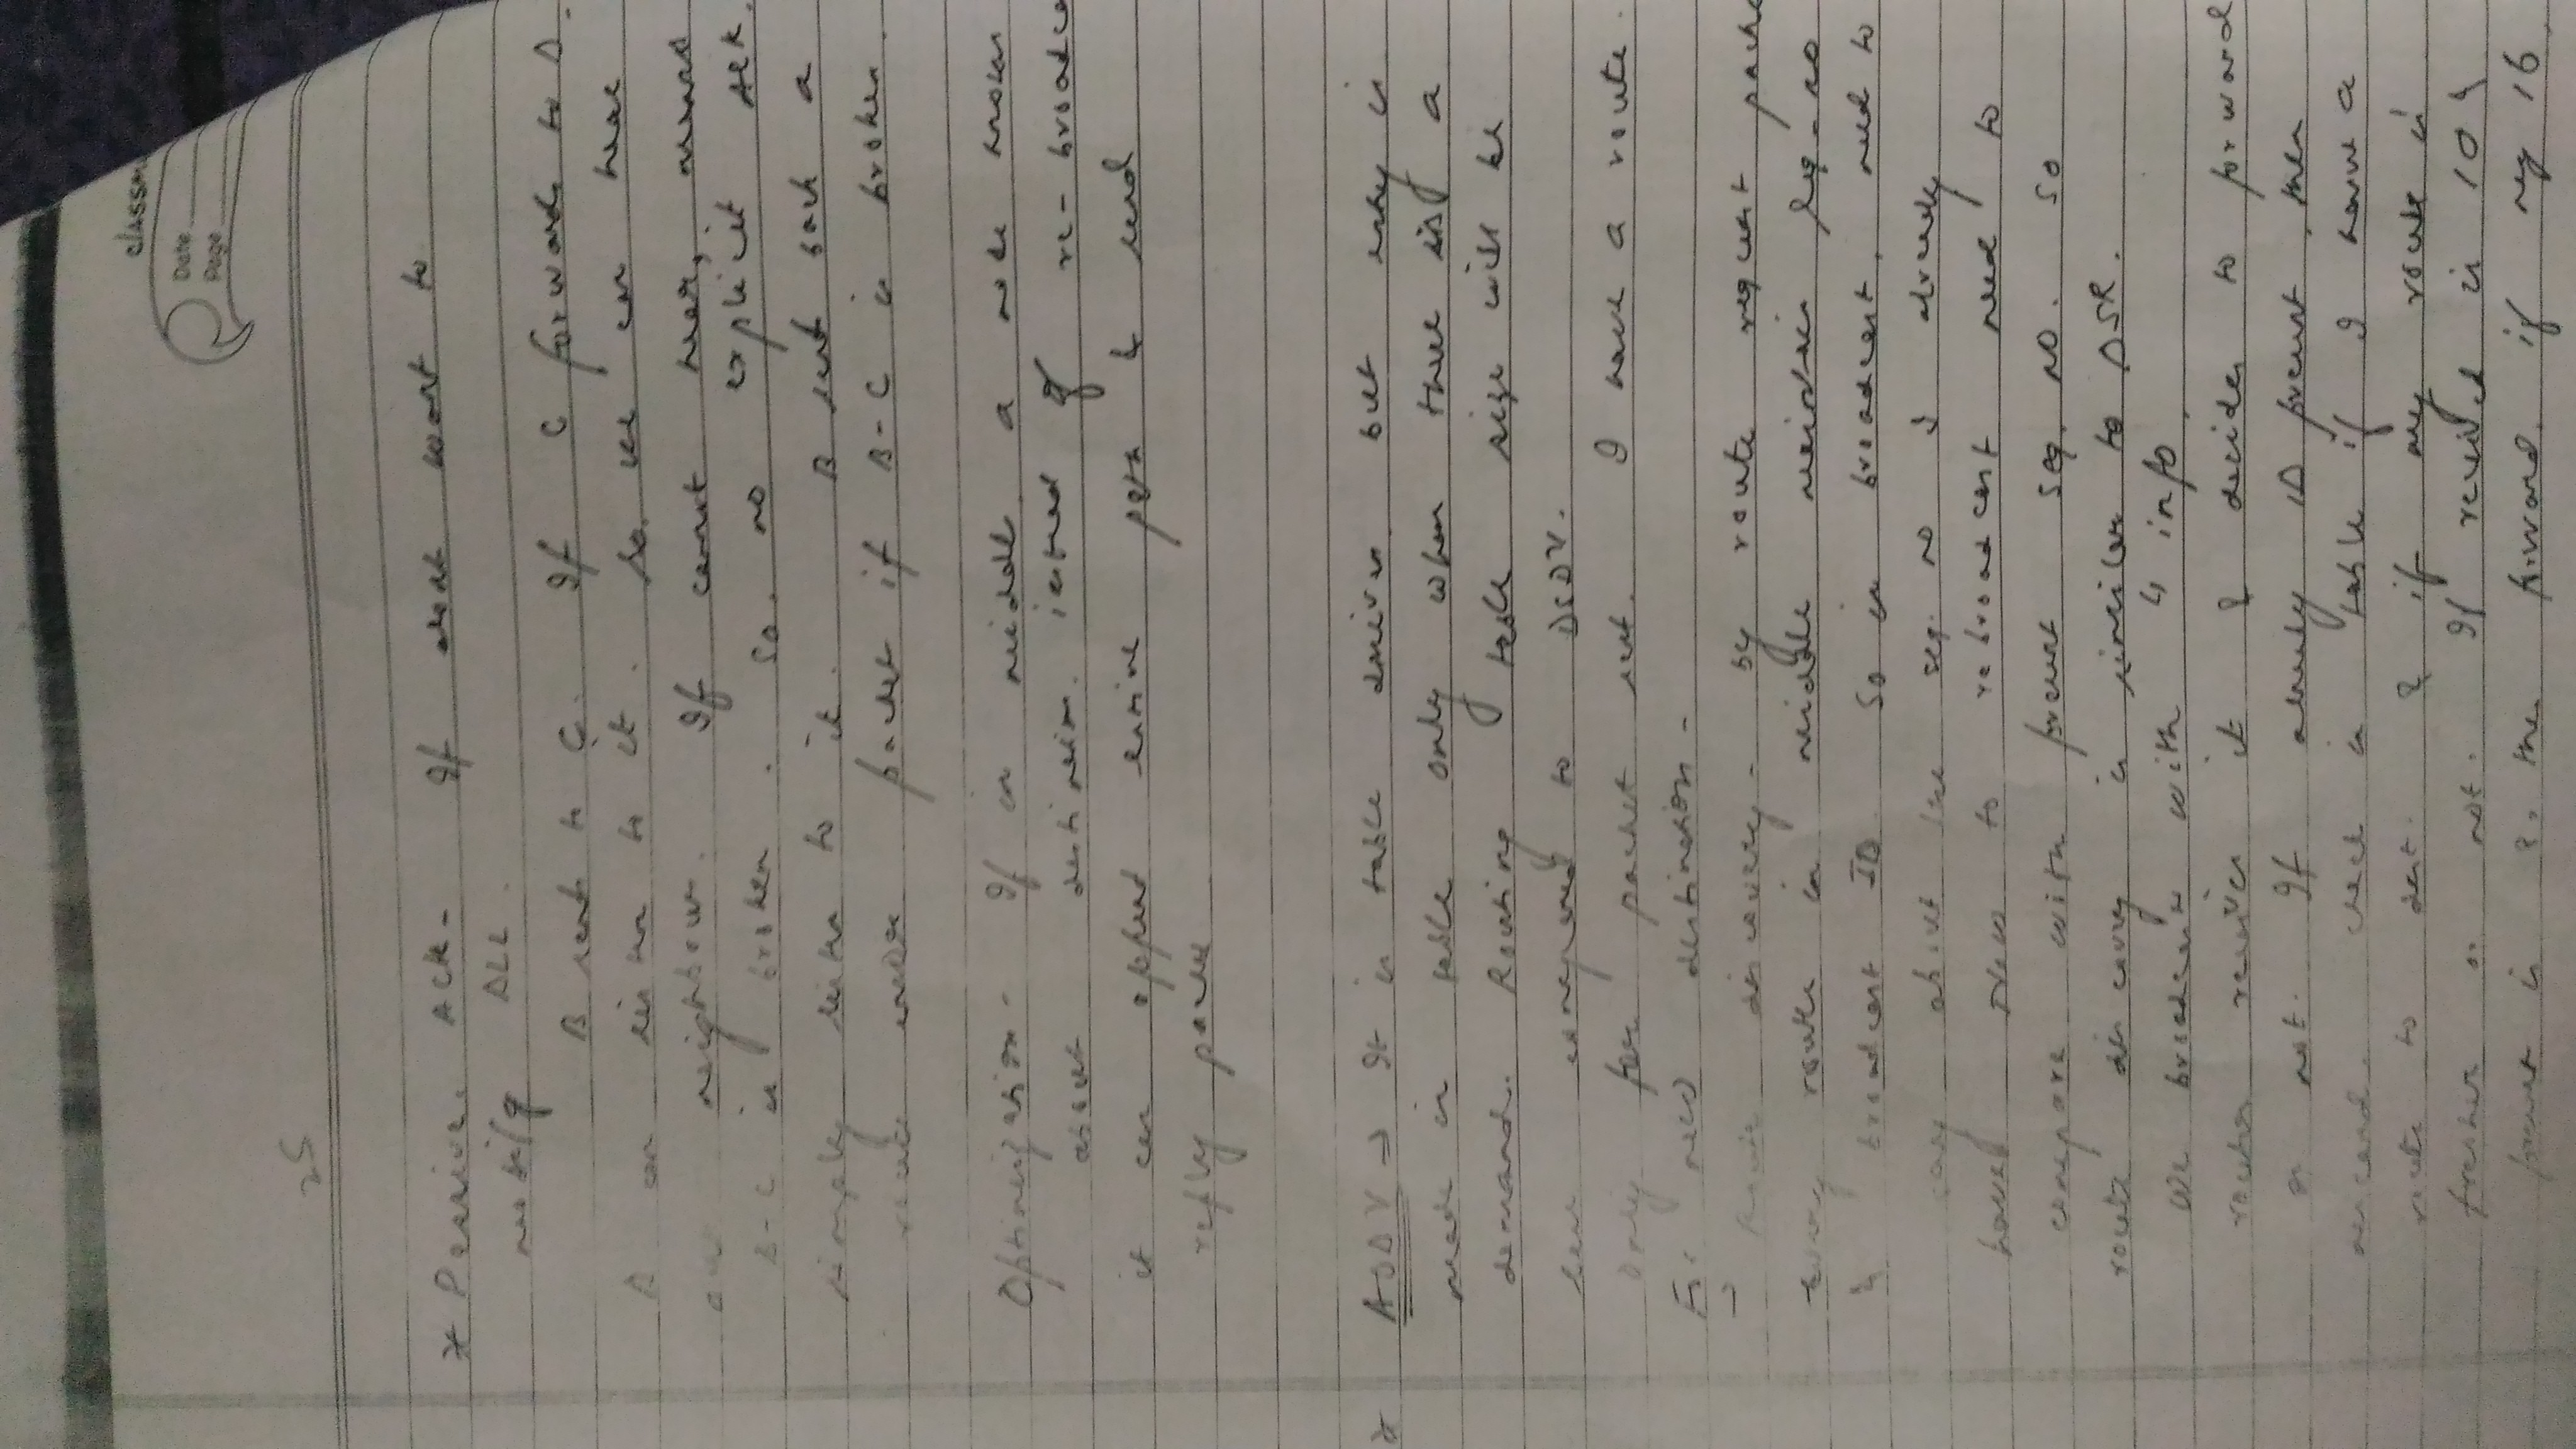 classm
Date
Page
25
* Passive ACK - If dont want to
modify DLL.
B sent to C. If C forwards to D.
B can listen to it. So, we can hear
our neighbour. If cannot hear, means
B-C is broken. So, no explicit ACK.
simply listen to it. B sent back a
route error packet if B-C is broken.
Optimization - If in middle a node knows
about destination. instead of re-broadca
it can append entire path & send
reply packet
* AODV → It is table driven but entry is
made in table only when there is a
demand. Routing table size will be
less compared to DSDV.
Only for packet sent. I have a route.
For new destination -
→ Route discovery - by route request packe
Every route in middle maintain seq-no
& broadcast ID. So in broadcast, need to
say about the seq. no I already
have. Now to rebroadcast need to
compare with present seq. no. So
route discovery is similar to DSR.
We broadcast with 4 info
router receives it & decides to forward
or not. If already ID present, then
discard. check in table if I have a
route to dest. & if my route is
fresher or not. If received is 10 &
present is 8. then forward. if my 16